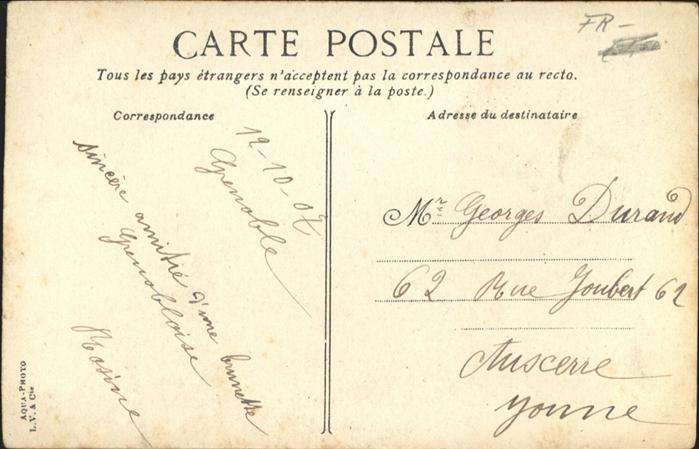 FR-
CARTE POSTALE
Tous les pays étrangers n'acceptent pas la correspondance au recto.
(Se renseigner à la poste.)
Correspondance
Adresse du destinataire
12-10-07
Grenoble
sincère amitié d'une brunette
Grenobloise
Rosine
Mr Georges Durand
62 Rue Joubert 62
Auscerre
Yonne
AQUA-PHOTO
L. V. & Cie